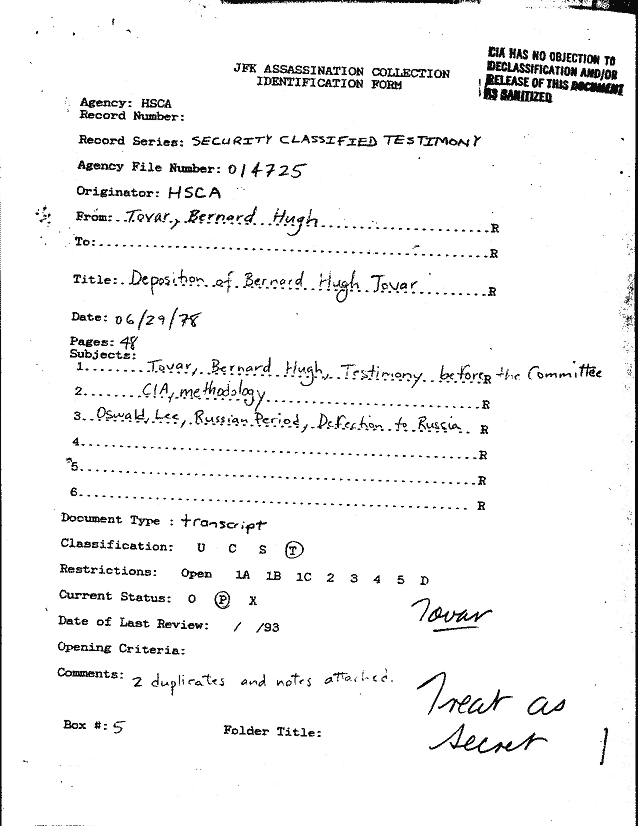 CIA HAS NO OBJECTION TO
DECLASSIFICATION AND/OR
RELEASE OF THIS DOCUMENT
AS SANITIZED
JFK ASSASSINATION COLLECTION
IDENTIFICATION FORM
Agency: HSCA
Record Number:
Record Series: SECURITY CLASSIFIED TESTIMONY
Agency File Number: 014725
Originator: HSCA
From: Tovar, Bernard Hugh R
To: R
Title: Deposition of Bernard Hugh Tovar R
Date: 06/29/78
Pages: 48
Subjects:
1. Tovar, Bernard Hugh, Testimony before R the Committee
2. CIA, methodology R
3. Oswald, Lee, Russian Period, Defection to Russia R
4. R
5. R
6. R
Document Type : transcript
Classification: U C S T
Restrictions: Open 1A 1B 1C 2 3 4 5 D
Current Status: O P X
Tovar
Date of Last Review: / /93
Opening Criteria:
Comments: 2 duplicates and notes attached.
Treat as
Secret
Box #: 5 Folder Title: